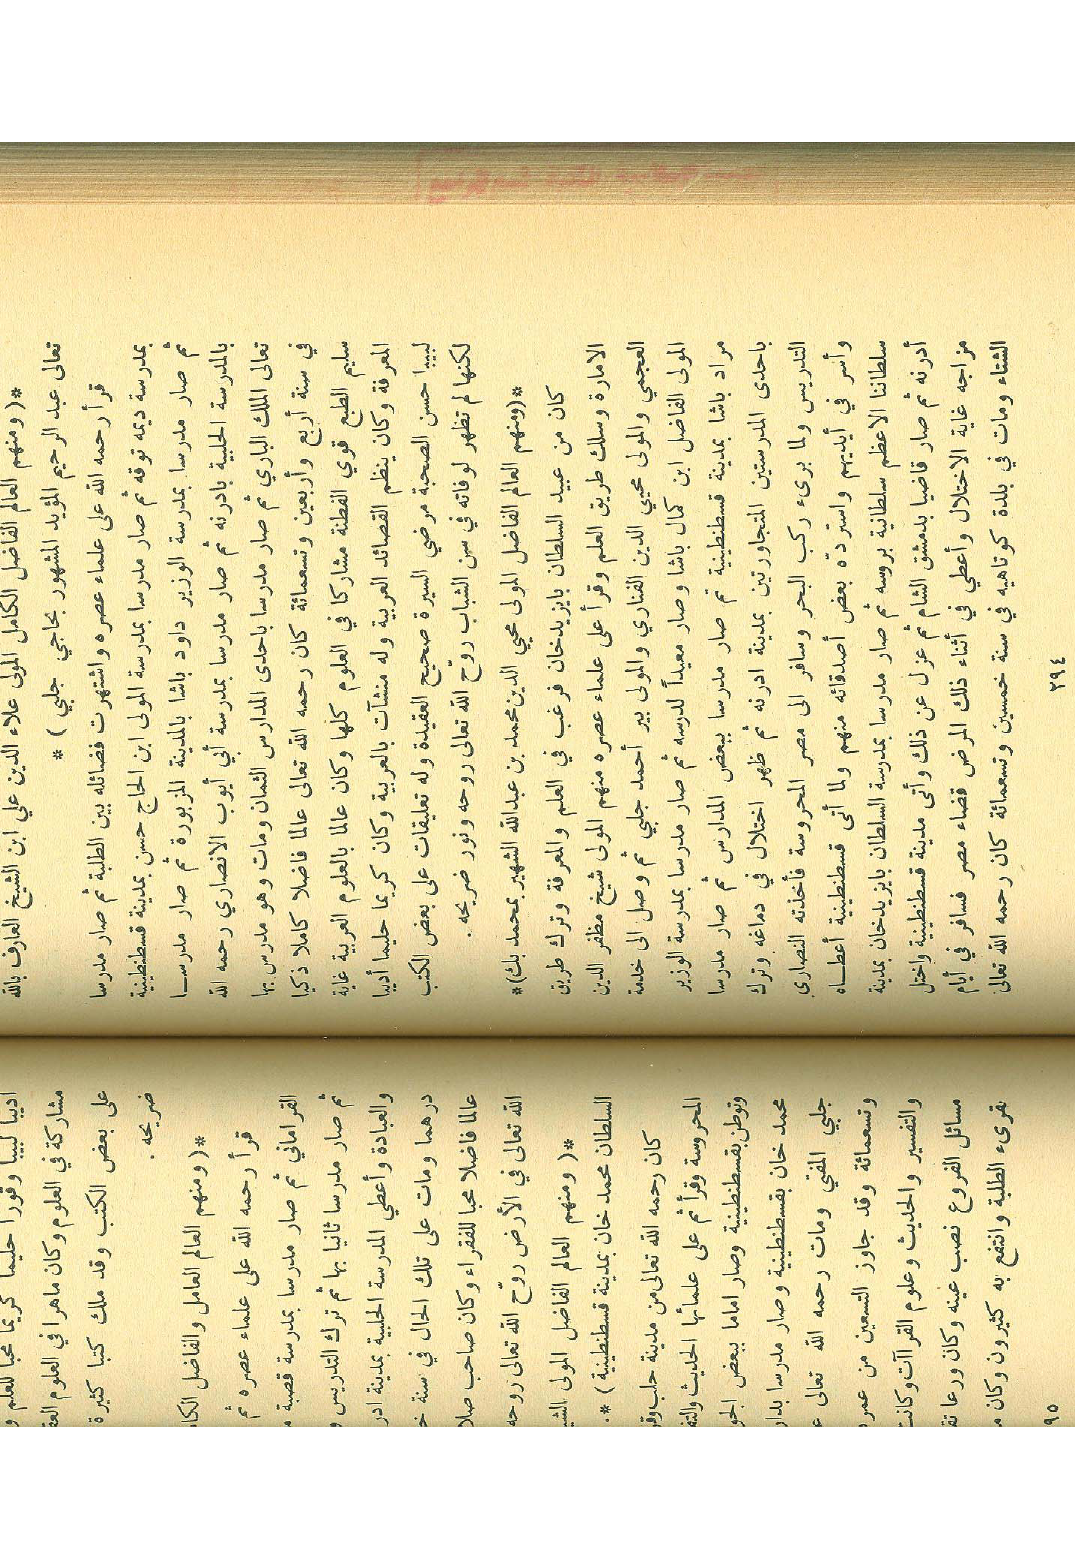 *( ومنهم العالم الفاضل الكامل المولى علاء الدين علي ابن الشيخ العارف بالله
تعالى عبد الرحيم المؤيد المشهور بحاجي جلبي ) *
قرأ رحمه الله على علماء عصره واشتهرت فضائله بين الطلبة ثم صار مدرسا
بمدرسة ديمه توقه ثم صار مدرسا بمدرسة المولى ابن الحاج حسن بمدينة قسطنطينية
ثم صار مدرسا بمدرسة الوزير داود باشا بالمدينة المزبورة ثم صار مدرسا
بالمدرسة الحلبية بادرنه ثم صار مدرسا بمدرسة أبي أيوب الانصاري رحمه الله
تعالى الملك الباري ثم صار مدرسا باحدى المدارس الثمان ومات وهو مدرس بها
في سنة أربع وأربعين وتسعمائة كان رحمه الله تعالى عالما فاضلا كاملا ذكيا
سليم الطبع قوي الفطنة مشاركا في العلوم كلها وكان عالما بالعلوم العربية غاية
المعرفة وكان ينظم القصائد العربية وله منشآت بالعربية وكان كريما حليما أديبا
لبيبا حسن الصحبة مرضي السيرة صحيح العقيدة وله تعليقات على بعض الكتب
لكنها لم تظهر لوفاته في سن الشباب روّح الله تعالى روحه ونور ضريحه .
*(ومنهم العالم الفاضل المولى محيي الدين محمد بن عبدالله الشهير بمحمد بك)*
كان من عبيد السلطان بايزيدخان فرغب في العلم والمعرفة وترك طريق
الامارة وسلك طريق العلم وقرأ على علماء عصره منهم المولى شيخ مظفر الدين
العجمي والمولى محيي الدين الفناري والمولى بير أحمد جلبي ثم وصل الى خدمة
المولى الفاضل ابن كمال باشا وصار معيداً لدرسه ثم صار مدرسا بمدرسة الوزير
مراد باشا بمدينة قسطنطينية ثم صار مدرسا ببعض المدارس ثم صار مدرسا
باحدى المدرستين المتجاورتين بمدينة ادرنه ثم ظهر اختلال في دماغه وترك
التدريس ولما برىء ركب البحر وسافر الى مصر المحروسة فأخذته النصارى
وأسر في أيديهم واسترده بعض أصدقائه منهم ولما أتى قسطنطينية أعطاه
سلطاننا الاعظم سلطانية بروسه ثم صار مدرسا بمدرسة السلطان بايزيدخان بمدينة
أدرنه ثم صار قاضيا بدمشق الشام ثم عزل عن ذلك وأتى مدينة قسطنطينية واختل
مزاجه غاية الاختلال وأعطي في أثناء ذلك المرض قضاء مصر فسافر في أيام
الشتاء ومات في بلدة كوتاهيه في سنة خمسين وتسعمائة كان رحمه الله تعالى
٢٩٤
اديبا لبيبا وقورا حليما كريما محبا للعلم و
مشاركة في العلوم وكان ماهرا في العلوم العق
على بعض الكتب وقد ملك كتبا كثيرة
ضريحه .
*( ومنهم العالم العامل والفاضل الكا
قرأ رحمه الله على علماء عصره ثم
القراماني ثم صار مدرسا بمدرسة قصبة
ثم صار مدرسا ثانيا بها ثم ترك التدريس و
والعبادة وأعطي المدرسة الحلبية بمدينة ادر
درهما ومات على تلك الحال في سنة
عالما فاضلا محبا للفقراء وكان صاحب صلا
الله تعالى في الأرض روّح الله تعالى روحه
*( ومنهم العالم الفاضل المولى الشي
السلطان محمد خان بمدينة قسطنطينية ) *.
كان رحمه الله تعالى من مدينة حلب وقر
المحروسة وقرأ ثم على علمائها الحديث والتف
وتوطن بقسطنطينية وصار اماما ببعض الجو
محمد خان بقسطنطينية وصار مدرسا بدار
جلبي المفتي ومات رحمه الله تعالى
وتسعمائة وقد جاوز التسعين من عمره
والتفسير والحديث وعلوم القراآت وكانت
مسائل الفروع نصب عينه وكان ورعا تق
يقرىء الطلبة وانتفع به كثيرون وكان
٩٥